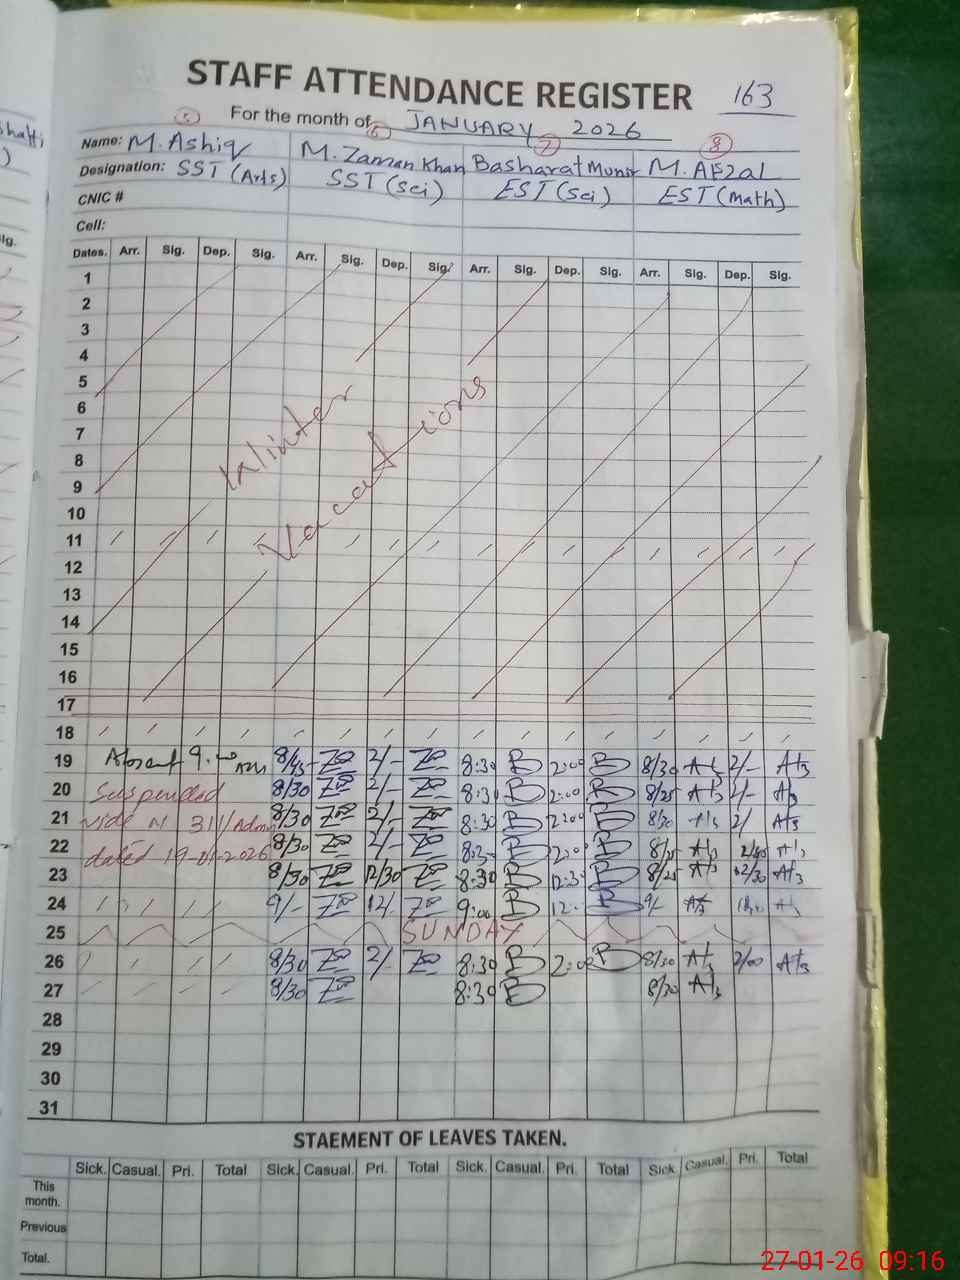 STAFF ATTENDANCE REGISTER 163
For the month of JANUARY 2026
5 6 7 8
Name: M. Ashiq M. Zaman Khan Basharat Munir M. Afzal
Designation: SST (Arts) SST (Sci) EST (Sci) EST (Math)
CNIC #
Cell:
Dates. Arr. Sig. Dep. Sig. Arr. Sig. Dep. Sig. Arr. Sig. Dep. Sig. Arr. Sig. Dep. Sig.
1
2
3
4
5
6
7
8
9
10
11
12
13
14
15
16
17
18
Winter
Vacations
19 Absent 9:00 8/45 2/- 8:30 B 2:00 B 8/30 2/-
20 Suspended 8/30 2/- 8:30 B 2:00 B 8/25 2/-
21 vide N 311/Admn 8/30 2/- 8:30 B 2:00 B 8/30 2/
22 dated 19-01-2026 8/30 2/- B B
23 8/30 12/30 8:30 B 12:30 B 8/25 12/30
24 9/- 12/- 9:00 B 12: B 9/-
25 SUNDAY
26 8/30 2/- 8:30 B 2:00 B 8/30 2/00
27 8/30 8:30 B 8/30
28
29
30
31
STAEMENT OF LEAVES TAKEN.
Sick. Casual. Pri. Total Sick. Casual. Pri. Total Sick. Casual. Pri. Total Sick. Casual. Pri. Total
This month.
Previous
Total.
27-01-26 09:16